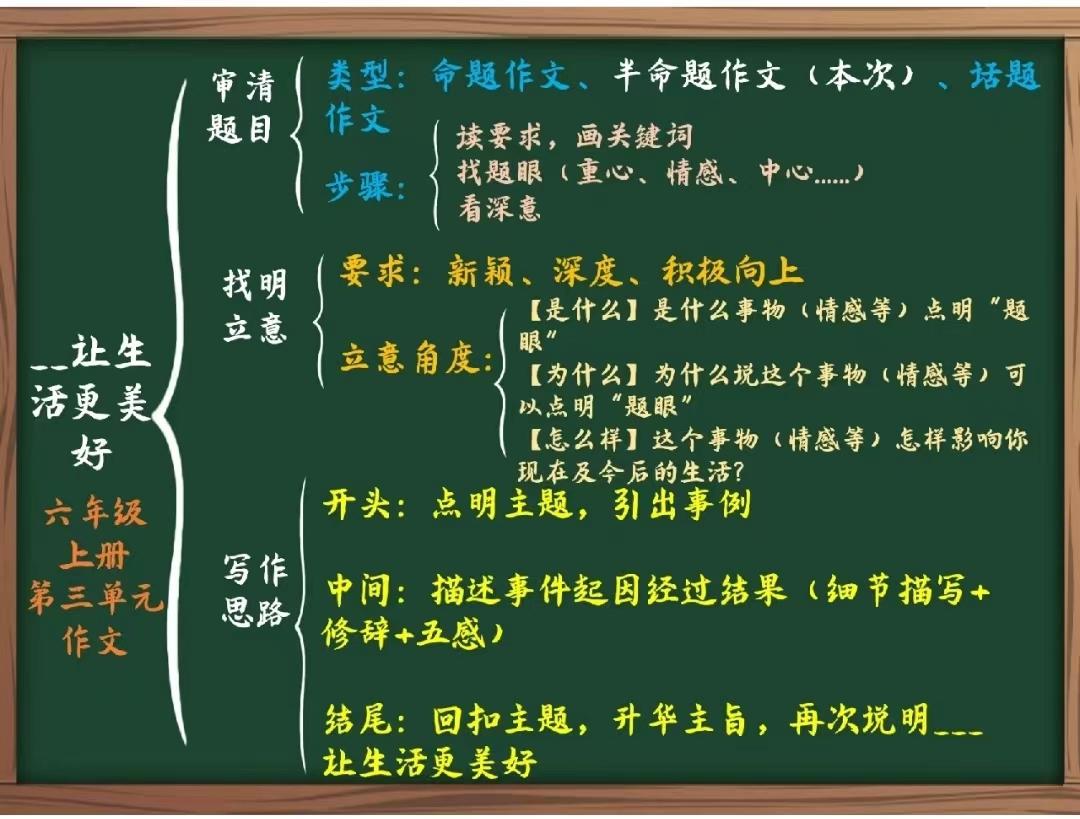 __让生
活更美
好
六年级
上册
第三单元
作文
审清
题目
类型：命题作文、半命题作文（本次）、话题
作文
步骤：
读要求，画关键词
找题眼（重心、情感、中心……）
看深意
找明
立意
要求：新颖、深度、积极向上
立意角度：
【是什么】是什么事物（情感等）点明“题
眼”
【为什么】为什么说这个事物（情感等）可
以点明“题眼”
【怎么样】这个事物（情感等）怎样影响你
现在及今后的生活？
写作
思路
开头：点明主题，引出事例
中间：描述事件起因经过结果（细节描写+
修辞+五感）
结尾：回扣主题，升华主旨，再次说明___
让生活更美好